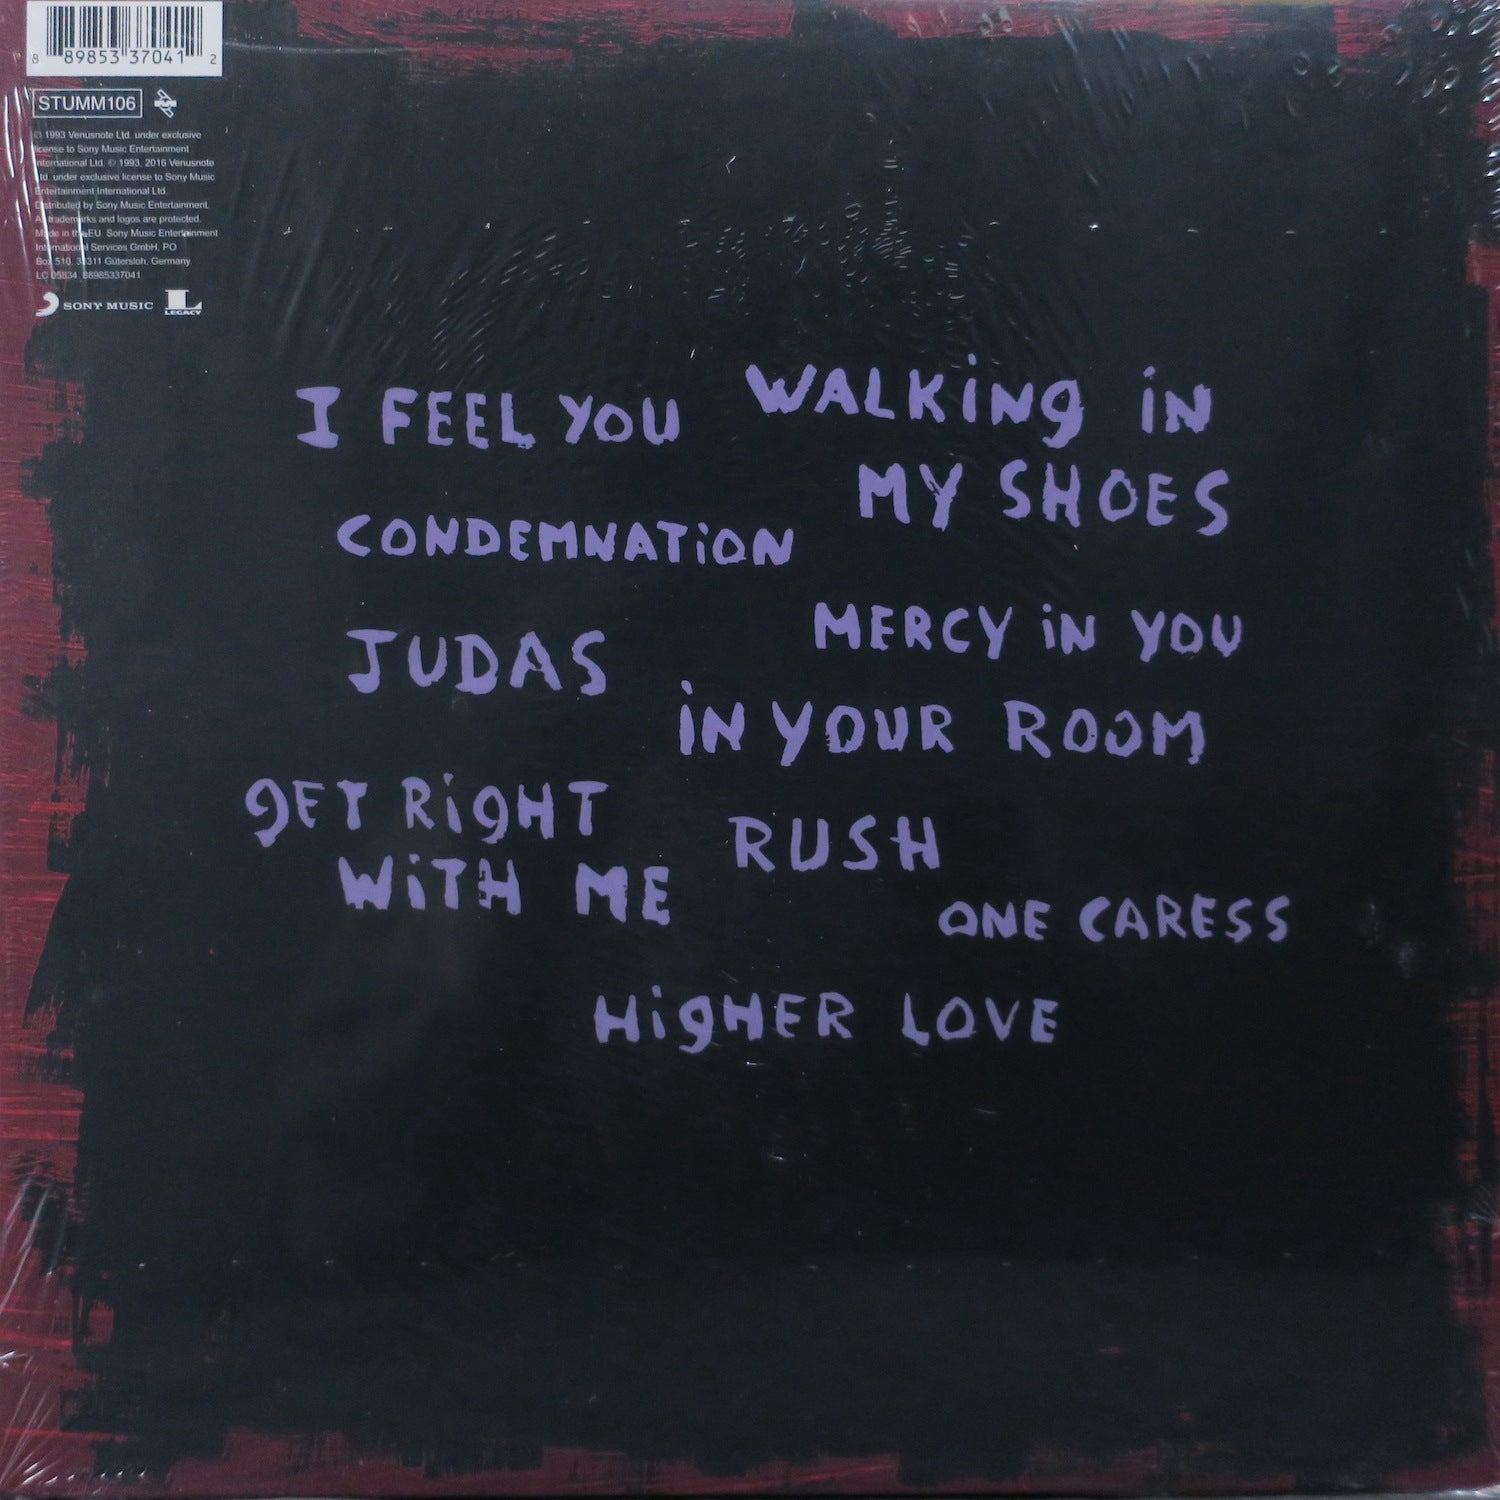 8 89853 37041 2
STUMM106
1993 Venusnote Ltd. under exclusive
license to Sony Music Entertainment
International Ltd. © 1993, 2016 Venusnote
Ltd. under exclusive license to Sony Music
Entertainment International Ltd.
Distributed by Sony Music Entertainment.
All trademarks and logos are protected.
Made in the EU. Sony Music Entertainment
International Services GmbH, PO
Box 510, 33311 Gütersloh, Germany
LC 05834 88985337041
SONY MUSIC
LEGACY
I FEEL YOU
WALKiNg iN
MY SHOES
CONDEMNATiON
JUDAS
MERCY iN YOU
iN YOUR ROOM
gET RigHT
WiTH ME
RUSH
ONE CARESS
HigHER LOVE